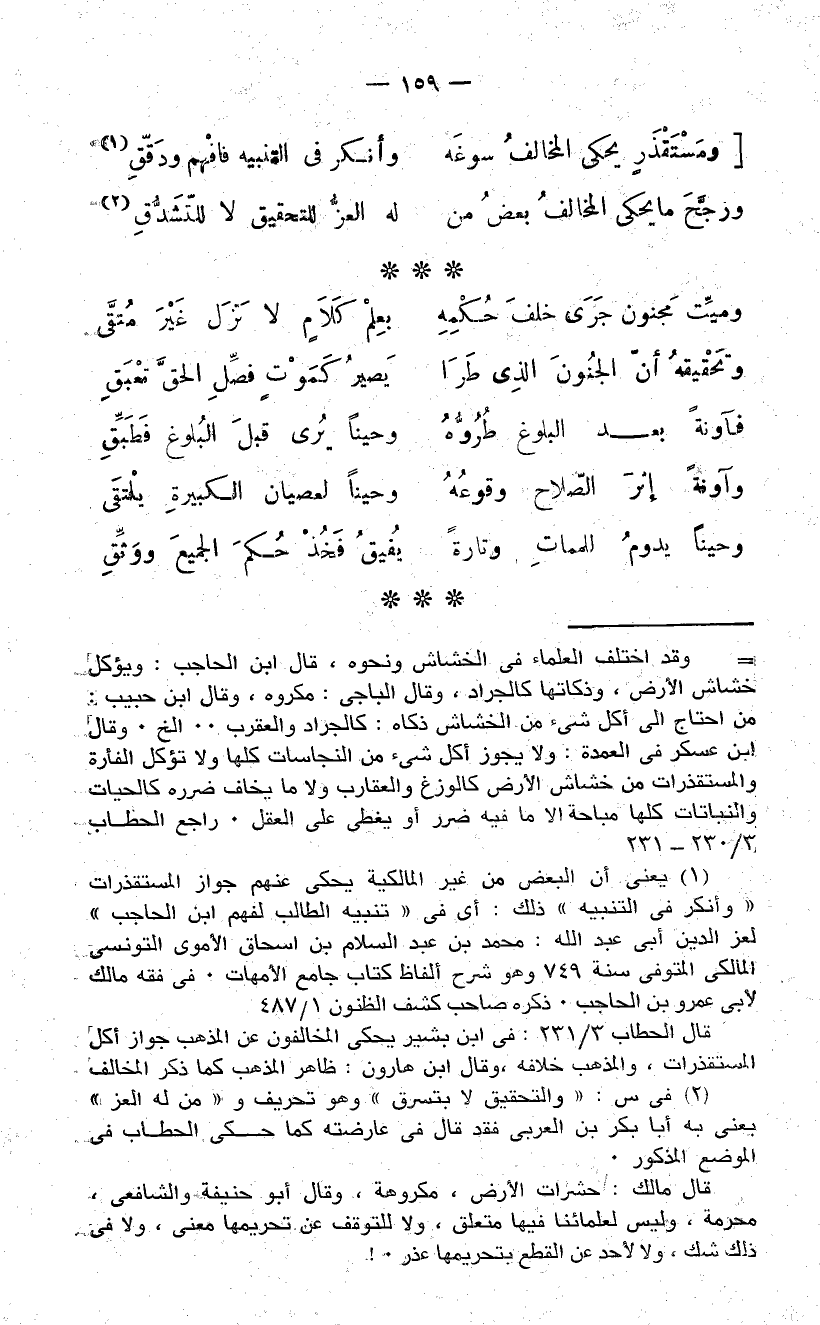 — ١٥٩ —
[ ومَسْتَقْذَرٍ يحكى المخالفُ سوغَه وأنـكر فى التنبيه فافْهم ودَقّقِ (١)
ورَجَّحَ مايحكى المخالفُ بعضُ من له العزُّ للتحقيق لا للتّشَدُّقِ (٢)
* * *
وميِّت مَجنون جَرَى خلفَ حُـكْمِهِ بعِلْم كَلَامٍ لا تزل غَيْرَ مُتقَّى
وتحَقيقهُ أنّ الجُنونَ الذِى طَرَا يَصيرُ كَمَوْتٍ فصِّل الحقَّ تعْبَقِ
فـآونةً بعــــد البلوغ طُرُوُّهُ وحيناً يُرى قبلَ البُلوغ فَطَبِّقِ
وآونةً إثرَ الصّلاح وقوعُهُ وحيناً لعصيان الـكبيرةِ يلْتقَى
وحيناً يدومُ للمماتِ وتارةً يُفيقُ فَخُذْ حُـكمَ الجميعَ ووَثِّقِ
* * *
= وقد اختلف العلماء فى الخشاش ونحوه ، قال ابن الحاجب : ويؤكل
خشاش الأرض ، وذكاتها كالجراد ، وقال الباجى : مكروه ، وقال ابن حبيب :
من احتاج الى أكل شىء من الخشاش ذكاه : كالجراد والعقرب ٠٠ الخ ٠ وقال
ابن عسكر فى العمدة : ولا يجوز أكل شىء من النجاسات كلها ولا تؤكل الفأرة
والمستقذرات من خشاش الأرض كالوزغ والعقارب ولا ما يخاف ضرره كالحيات
والنباتات كلها مباحة الا ما فيه ضرر أو يغطى على العقل ٠ راجع الحطـاب
٢٣٠/٣ – ٢٣١
(١) يعنى أن البعض من غير المالكية يحكى عنهم جواز المستقذرات
« وأنكر فى التنبيه » ذلك : أى فى « تنبيه الطالب لفهم ابن الحاجب »
لعز الدين أبى عبد الله : محمد بن عبد السلام بن اسحاق الأموى التونسى
المالكى المتوفى سنة ٧٤٩ وهو شرح ألفاظ كتاب جامع الأمهات ٠ فى فقه مالك
لأبى عمرو بن الحاجب ٠ ذكره صاحب كشف الظنون ٤٨٧/١
قال الحطاب ٢٣١/٣ : فى ابن بشير يحكى المخالفون عن المذهب جواز أكل
المستقذرات ، والمذهب خلافه ،وقال ابن هارون : ظاهر المذهب كما ذكر المخالف
(٢) فى س : « والتحقيق لا بتسرق » وهو تحريف و « من له العز »
يعنى به أبا بكر بن العربى فقد قال فى عارضته كما حـكى الحطـاب فى
الموضع المذكور ٠
قال مالك : حشرات الأرض ، مكروهة ، وقال أبو حنيفة والشافعى ،
محرمة ، وليس لعلمائنا فيها متعلق ، ولا للتوقف عن تحريمها معنى ، ولا فى
ذلك شك ، ولا لأحد عن القطع بتحريمها عذر ٠ !